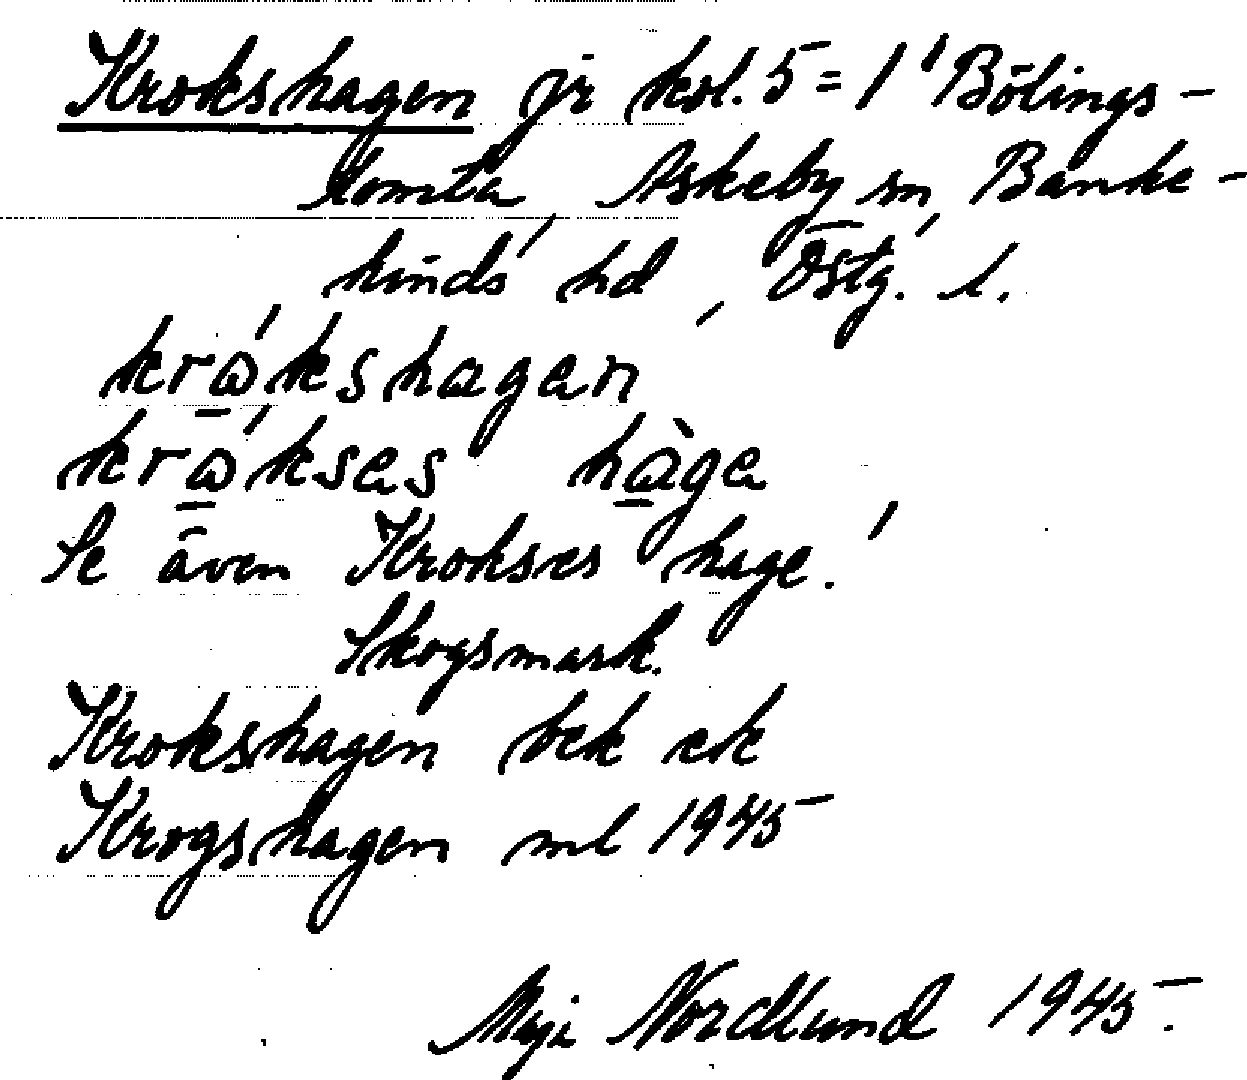 Krokshagen jr kol. 5 = 1 Bölings-
tomta, Askeby sn, Banke-
kinds hd, Östg. l.
krǻkshagen
krǻkses hàga
Se även Krokses hage!
Skogsmark.
Krokshagen bek ek
Krogshagen ml 1945
Maja Nordlund 1945.